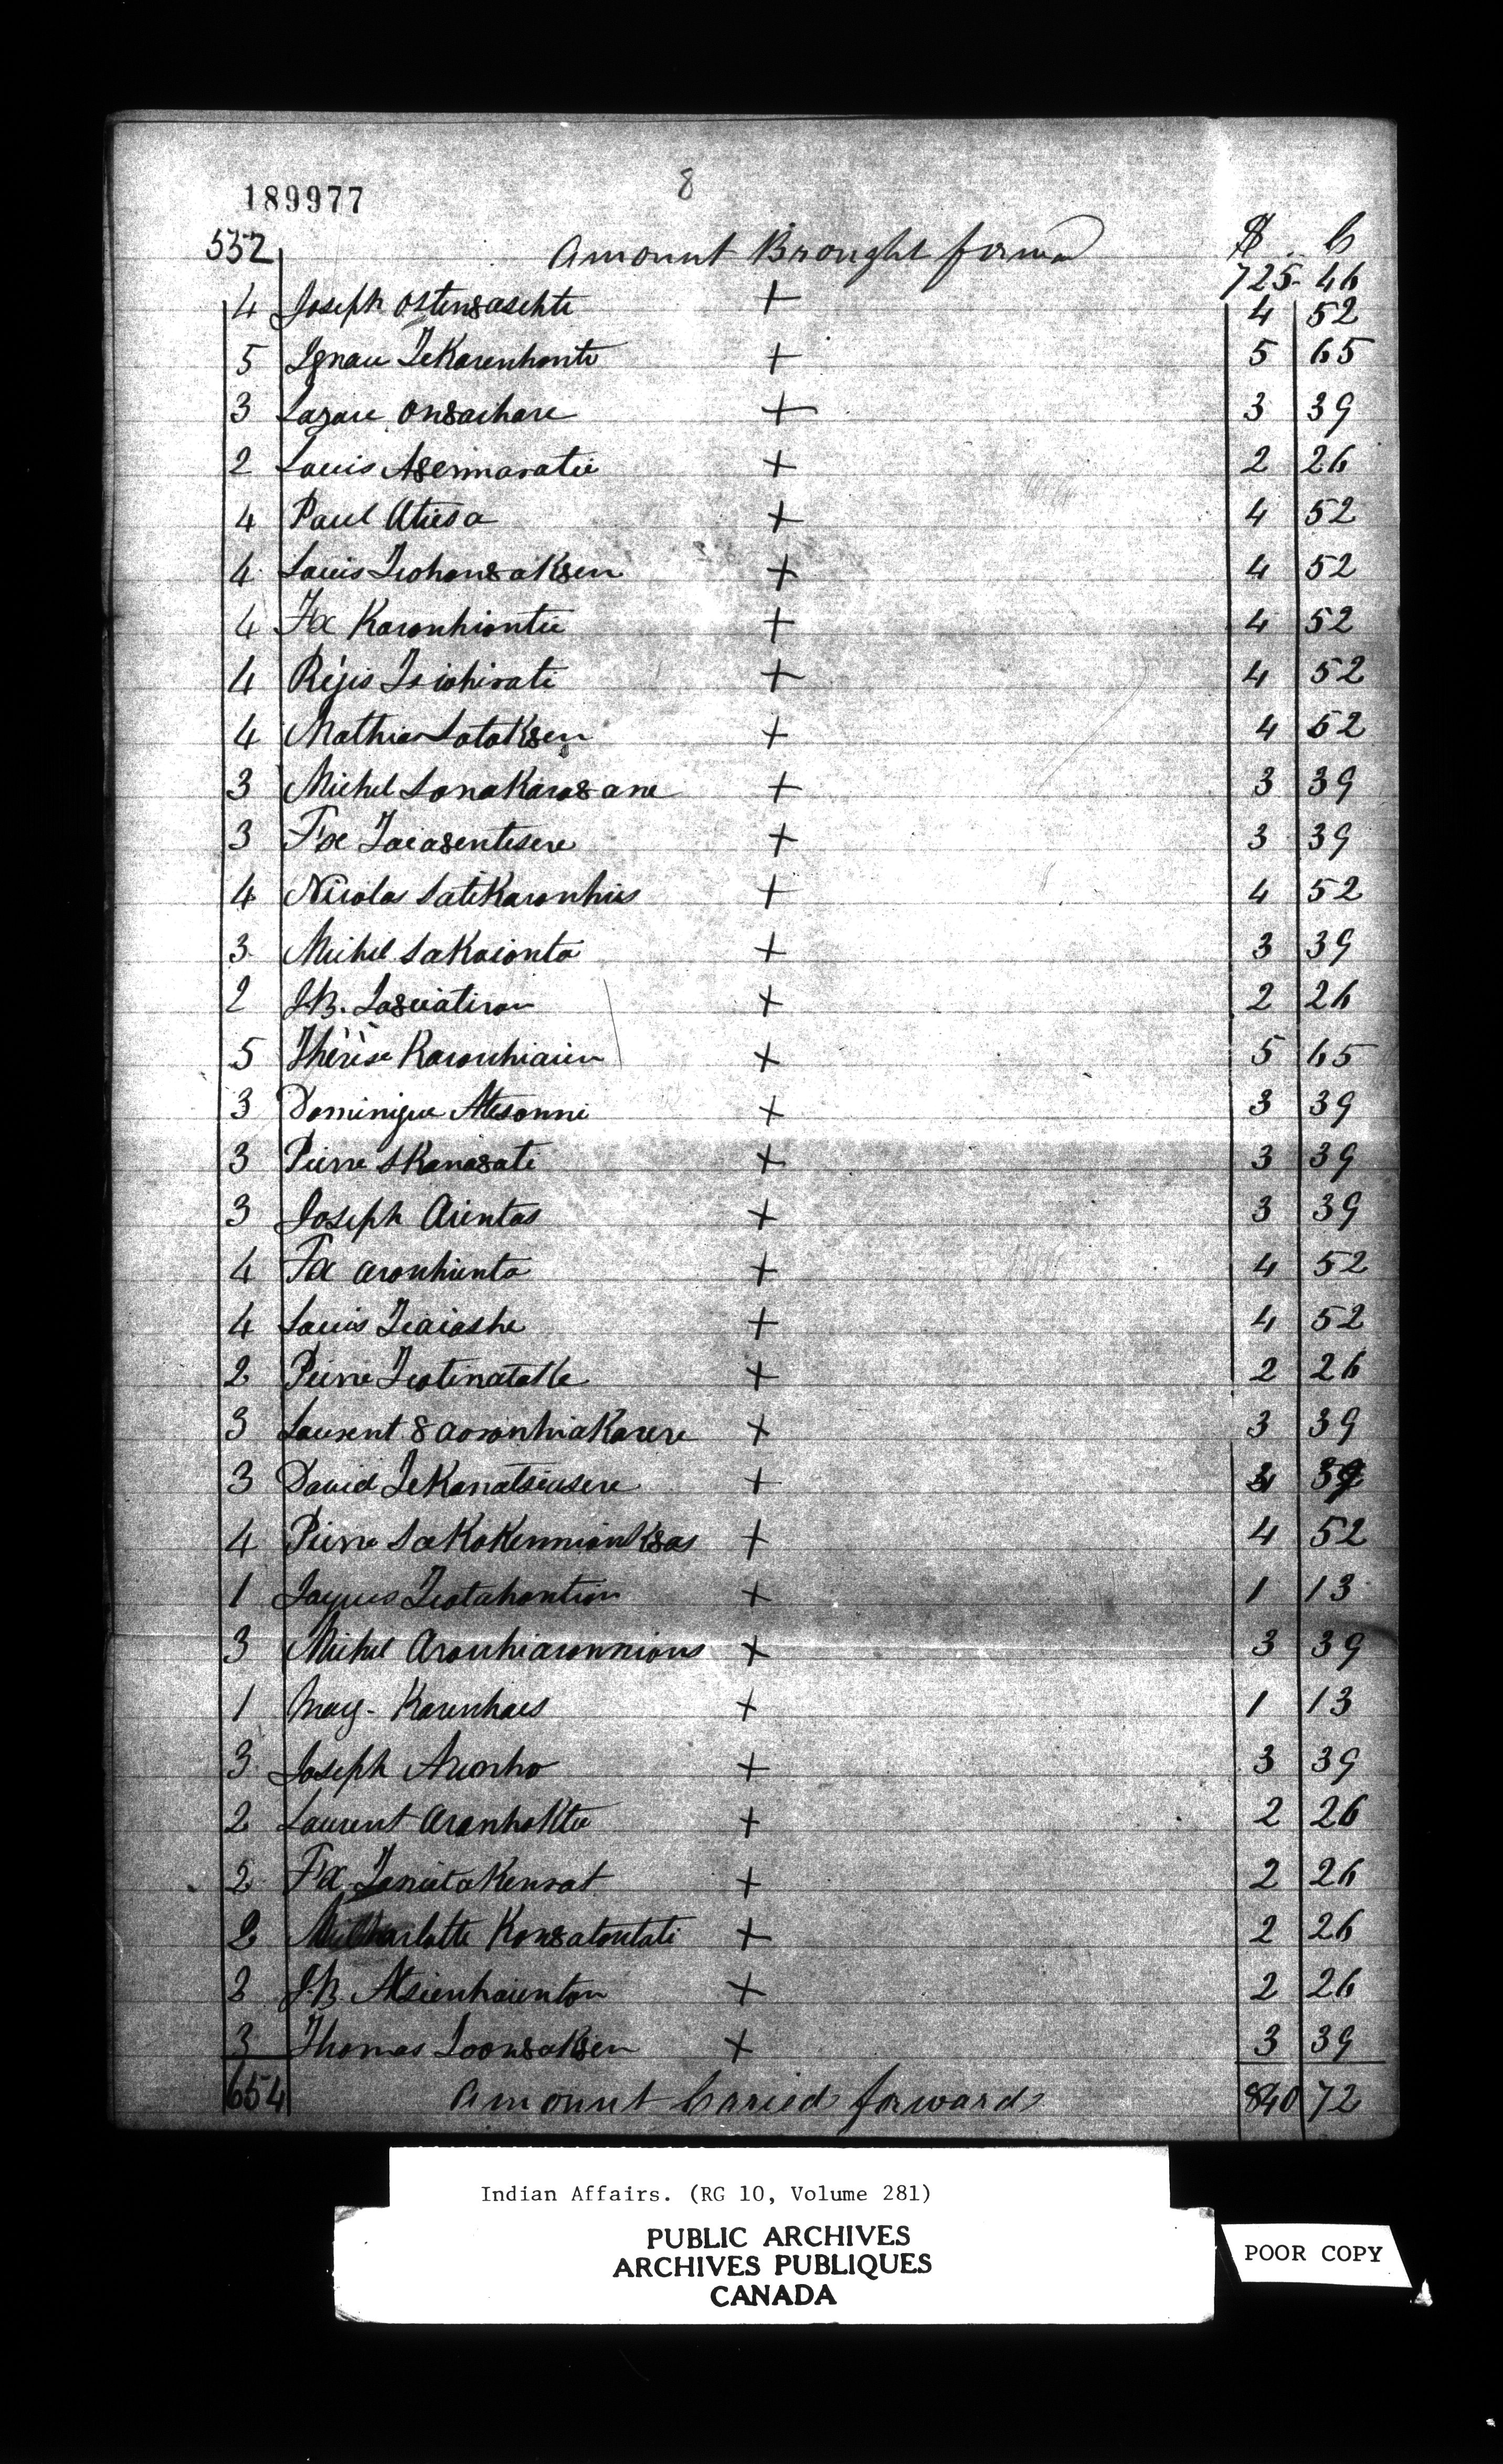 8
189977
532 Amount Brought forwa $ C
725 46
4 Joseph Osten8asehte + 4 52
5 Ignace Tekarenhonte + 5 65
3 Lazare On8aihare + 3 39
2 Louis A8ennaratie + 2 26
4 Paul Atiesa + 4 52
4 Louis Tiohon8ak8en + 4 52
4 Fx Karonhiontie + 4 52
4 Régis Tsiohirati + 4 52
4 Mathias Satak8en + 4 52
3 Michel Sonakaro8ane + 3 39
3 Fx Taia8entesere + 3 39
4 Nicolas Satekaronhies + 4 52
3 Michel Sakaionta + 3 39
2 J.B. + 2 26
5 Thérèse Karonhiaien + 5 65
3 Dominique Atesonni + 3 39
3 Pierre Skana8ati + 3 39
3 Joseph Arentas + 3 39
4 Fx Aronhienta + 4 52
4 Louis Tiaiashe + 4 52
2 Pierre Tiotinatakte + 2 26
3 Laurent 8aoronhiakarere + 3 39
3 David Tekanatsiasere + 3 39
4 Pierre Sakokennionk8as + 4 52
1 Jaques Tiotahontion + 1 13
3 Michel Aronhiaronnions + 3 39
1 Mag. Karenhaes + 1 13
3 Joseph + 3 39
2 Laurent Aronhaktee + 2 26
2 Fx + 2 26
2 Charlotte Kon8atontati + 2 26
2 J.B. Atsienhaienton + 2 26
3 Thomas Soon8ak8en + 3 39
654 Amount Caried forward 840 72
Indian Affairs. (RG 10, Volume 281)
PUBLIC ARCHIVES
ARCHIVES PUBLIQUES
CANADA
POOR COPY